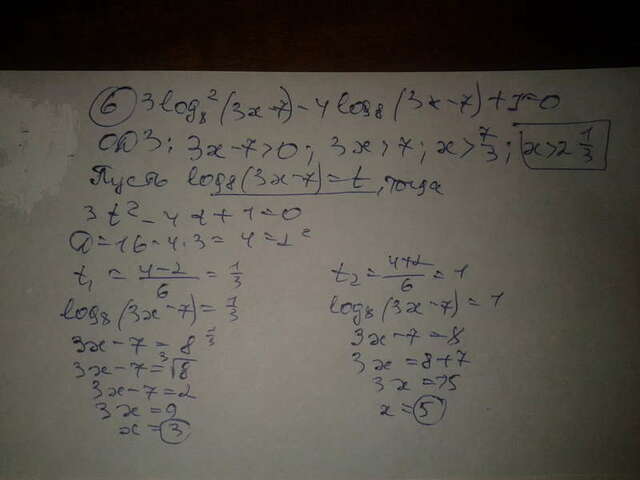 6 3log₈²(3x-7)-4log₈(3x-7)+1=0
ОДЗ: 3x-7>0; 3x>7; x>7/3; x>2 1/3
Пусть log₈(3x-7)=t, тогда
3t²-4t+1=0
D=16-4·3=4=2²
t₁=(4-2)/6=1/3
log₈(3x-7)=1/3
3x-7=8^(1/3)
3x-7=³√8
3x-7=2
3x=9
x=3
t₂=(4+2)/6=1
log₈(3x-7)=1
3x-7=8
3x=8+7
3x=15
x=5